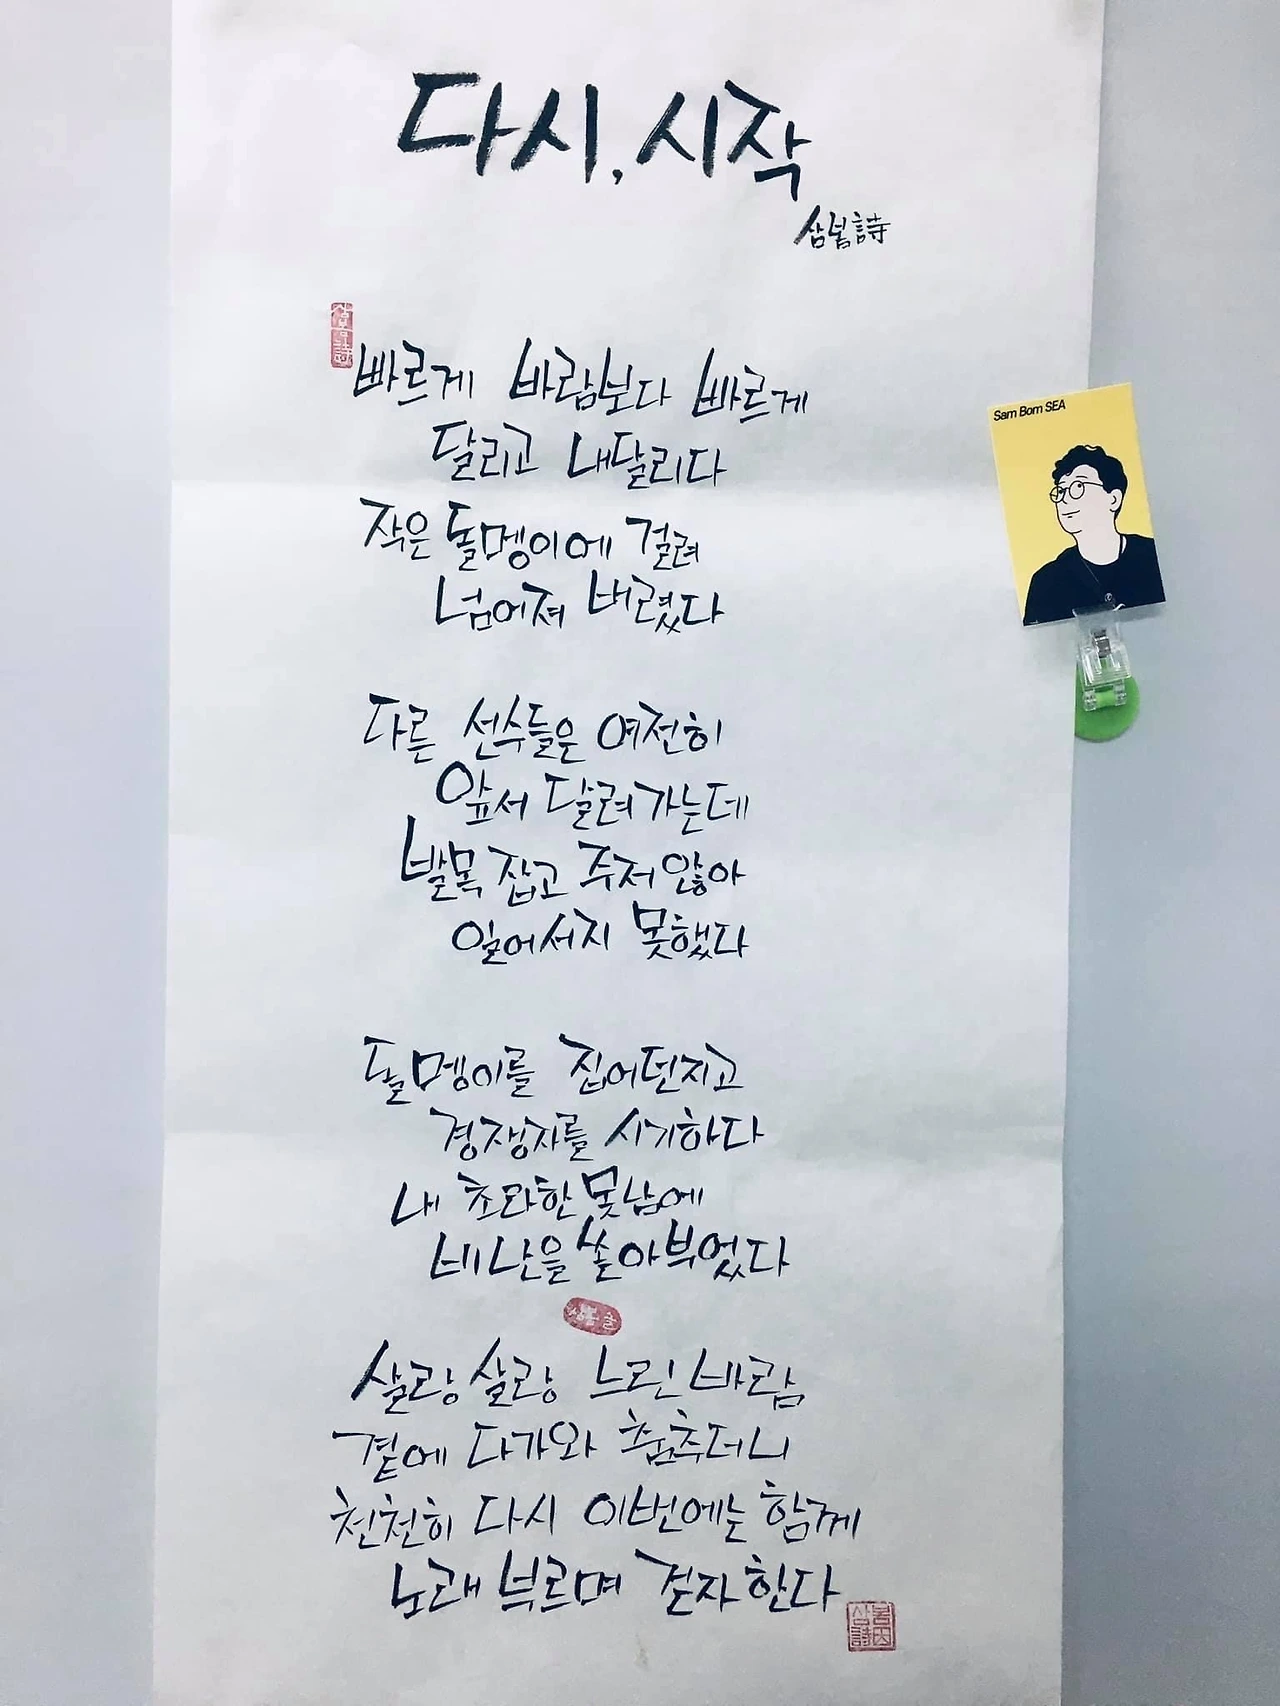 다시, 시작
삼봄詩
삼봄詩
빠르게 바람보다 빠르게
달리고 내달리다
작은 돌멩이에 걸려
넘어져 버렸다
Sam Bom SEA
다른 선수들은 여전히
앞서 달려가는데
발목 잡고 주저 않아
일어서지 못했다
돌멩이를 집어던지고
경쟁자를 시기하다
내 초라한 못남에
비난을 쏟아부었다
살랑살랑 느린 바람
곁에 다가와 춤추더니
천천히 다시 이번에는 함께
노래 부르며 걷자 한다